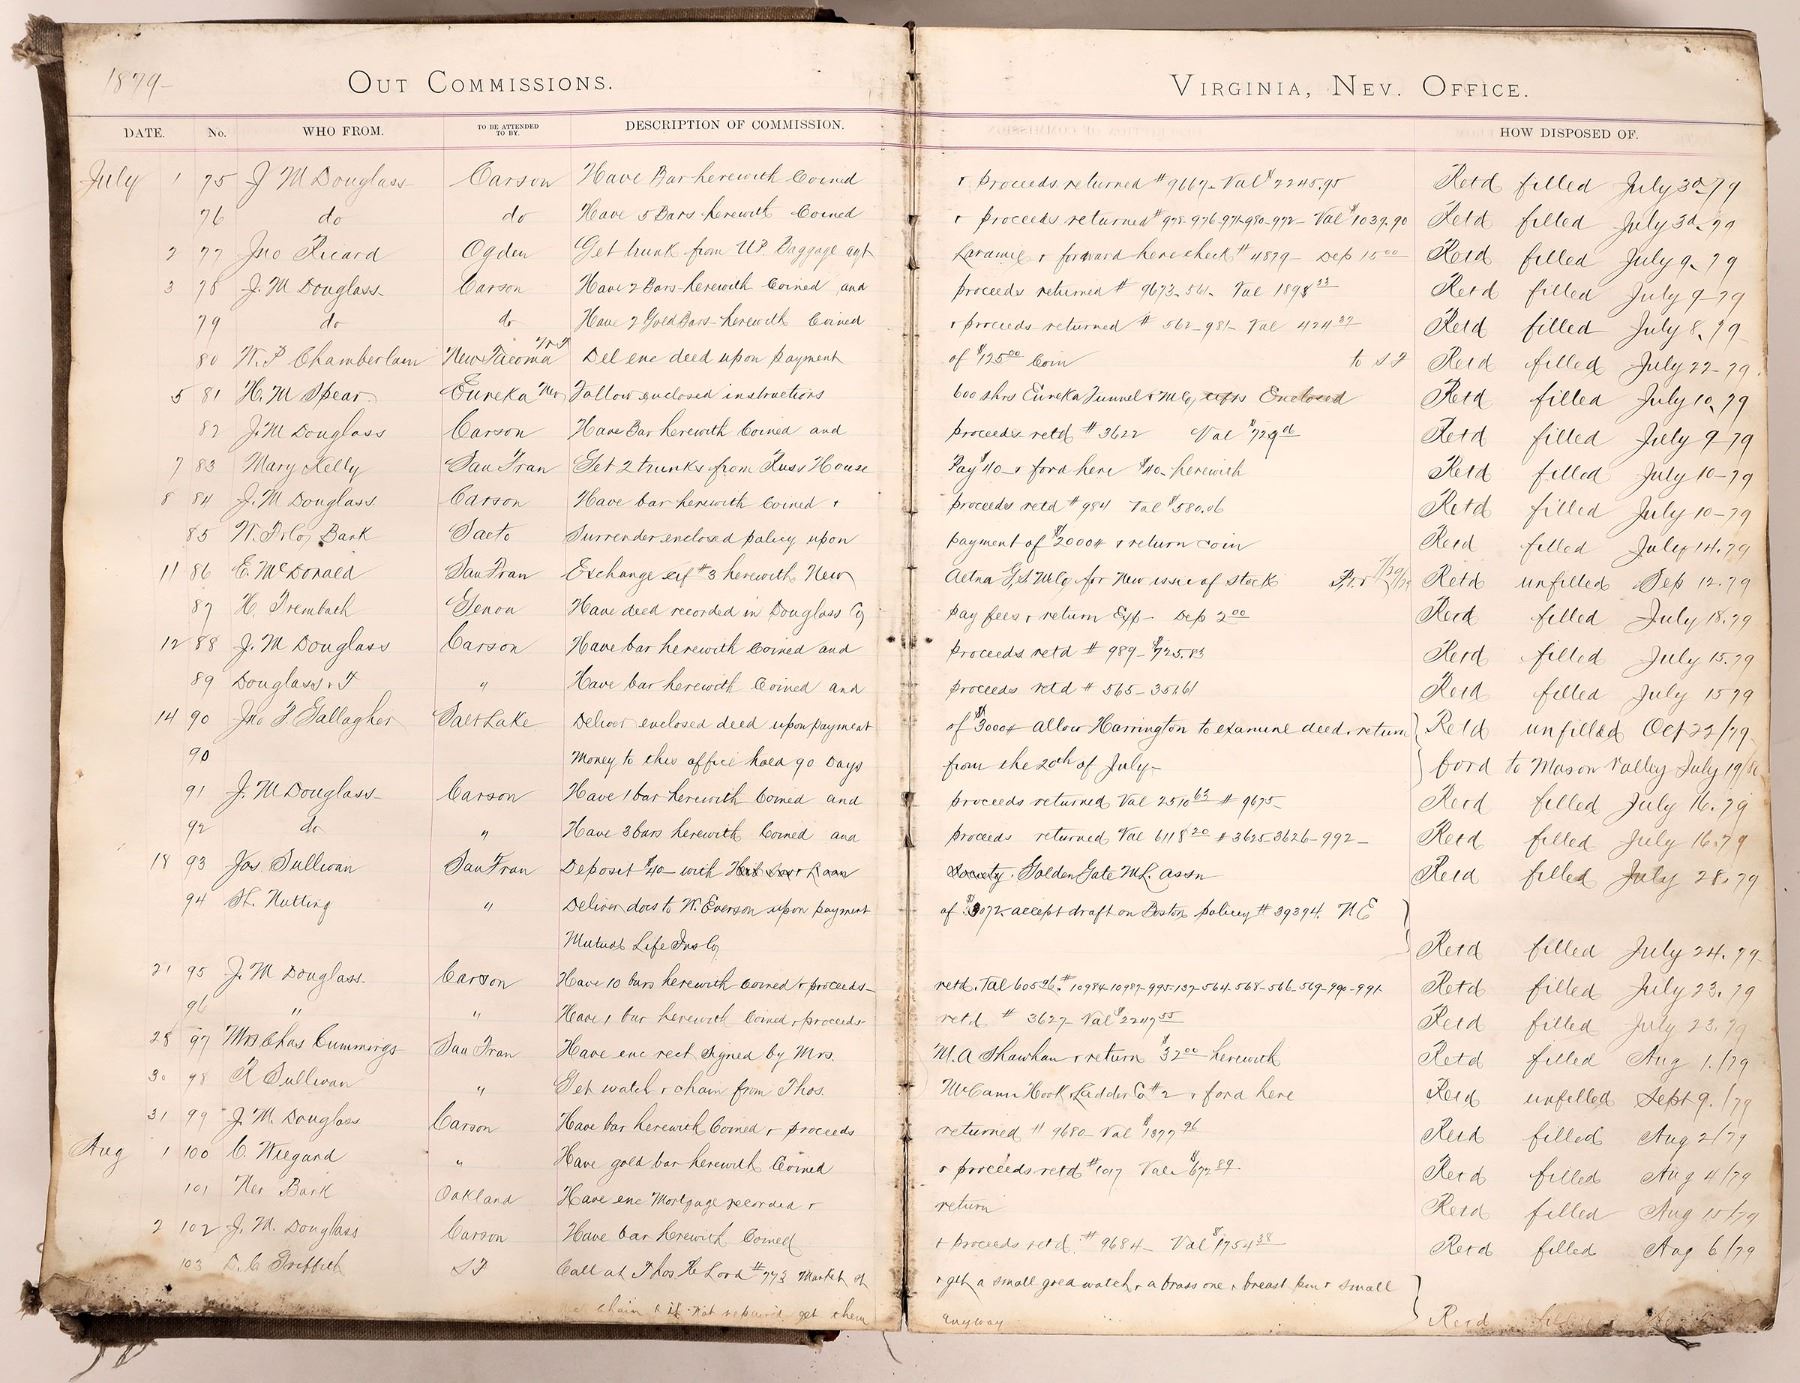 1879-
OUT COMMISSIONS. VIRGINIA, NEV. OFFICE.
DATE. No. WHO FROM. TO BE ATTENDED TO BY. DESCRIPTION OF COMMISSION. HOW DISPOSED OF.
July 1 75 J M Douglass Carson Have Bar herewith Coined & proceeds returned # 9667- Val $2245.95 Retd filled July 3d-79
76 do do Have 5 Bars herewith Coined & proceeds returned # 978-976-971-980-972- Val $1039.90 Retd filled July 3d-79
2 77 Jno Ricard Ogden Get trunk from UP Baggage agt Laramie & forward here check # 4879- Dep 15 00 Retd filled July 9-79
3 78 J. M Douglass Carson Have 2 Bars herewith Coined and proceeds returned # 9673-561- Val 1898 33 Retd filled July 9-79
79 do do Have 2 Gold Bars herewith Coined & proceeds returned # 562-981- Val 424 37 Retd filled July 8.79
80 W. P Chamberlain New Tacoma W.T Del enc deed upon payment of $125 00 Coin to SF Retd filled July 22-79
5 81 H. M Spear Eureka Nev Follow enclosed instructions 600 shrs Eureka Tunnel & M Co Enclosed Retd filled July 10.79
82 J. M Douglass Carson Have Bar herewith Coined and proceeds retd # 3622 Val $729 Retd filled July 9-79
7 83 Mary Kelly San Fran Get 2 trunks from Russ House Pay $40- & ford here $40- herewith Retd filled July 10-79
8 84 J. M Douglass Carson Have bar herewith Coined & proceeds retd # 984 Val $580.06 Retd filled July 10-79
85 W. F. & Co Bank Sacto Surrender enclosed policy upon payment of $2000 & return coin Retd filled July 14.79
11 86 E. McDonald San Fran Exchange # 3 herewith New Aetna G & S M Co for New issue of stock Retd unfilled Sep 12.79
87 H. Trembath Genoa Have deed recorded in Douglass Co pay fees & return Exp- Dep 2 00 Retd filled July 18.79
12 88 J. M Douglass Carson Have bar herewith Coined and proceeds retd # 989- $725.83 Retd filled July 15.79
89 Douglass & F " Have bar herewith Coined and proceeds retd # 565- Retd filled July 15 79
14 90 Jno F Gallagher Salt Lake Deliver enclosed deed upon payment of $3000 allow Harrington to examine deed, return Retd unfilled Oct 22/79
90 Money to this office hold 90 Days from the 20th of July- ford to Mason Valley July 19/
91 J. M Douglass Carson Have 1 bar herewith Coined and proceeds returned Val 2510 63 # 9675- Retd filled July 16.79
92 do " Have 3 bars herewith Coined and proceeds returned Val 6118 20 # 3625-3626-992- Retd filled July 16.79
18 93 Jas Sullivan San Fran Deposit $40- with Society Golden Gate M L. assn Retd filled July 28.79
94 H. Nutting " Deliver docs to W. Everson upon payment of accept draft on Boston policy # 39394. N E
Mutual Life Ins Co Retd filled July 24.79
21 95 J. M Douglass Carson Have 10 bars herewith coined & proceeds retd. Val # 10984-10987-995-137-564-568-566-569-990-991- Retd filled July 23.79
96 " " Have 1 bar herewith Coined & proceeds retd # 3627- Val $2247 55 Retd filled July 23.79
28 97 Mrs Chas Cummings San Fran Have enc rect signed by Mrs. M. A Shawhan & return $32 00 herewith Retd filled Aug 1/79
30 98 R Sullivan " Get watch & chain from Thos. McCann Hook & Ladder Co # 2 & ford here Retd unfilled Sept 9./79
31 99 J. M. Douglass Carson Have bar herewith Coined & proceeds returned # 9680- Val $1377 96 Retd filled Aug 2/79
Aug 1 100 C. Wiegand " Have gold bar herewith Coined & proceeds retd # 1017 Val $672 89 Retd filled Aug 4/79
101 Nev Bank Oakland Have enc Mortgage recorded & return Retd filled Aug 15/79
2 102 J. M. Douglass Carson Have bar herewith Coined & proceeds retd. # 9684- Val $1754 38 Retd filled Aug 6/79
103 D. C Griffith SF Call at Thos. # 773 Market St & get a small gold watch & a brass one & breast pin & small
chain & if not repaired get them anyway Retd